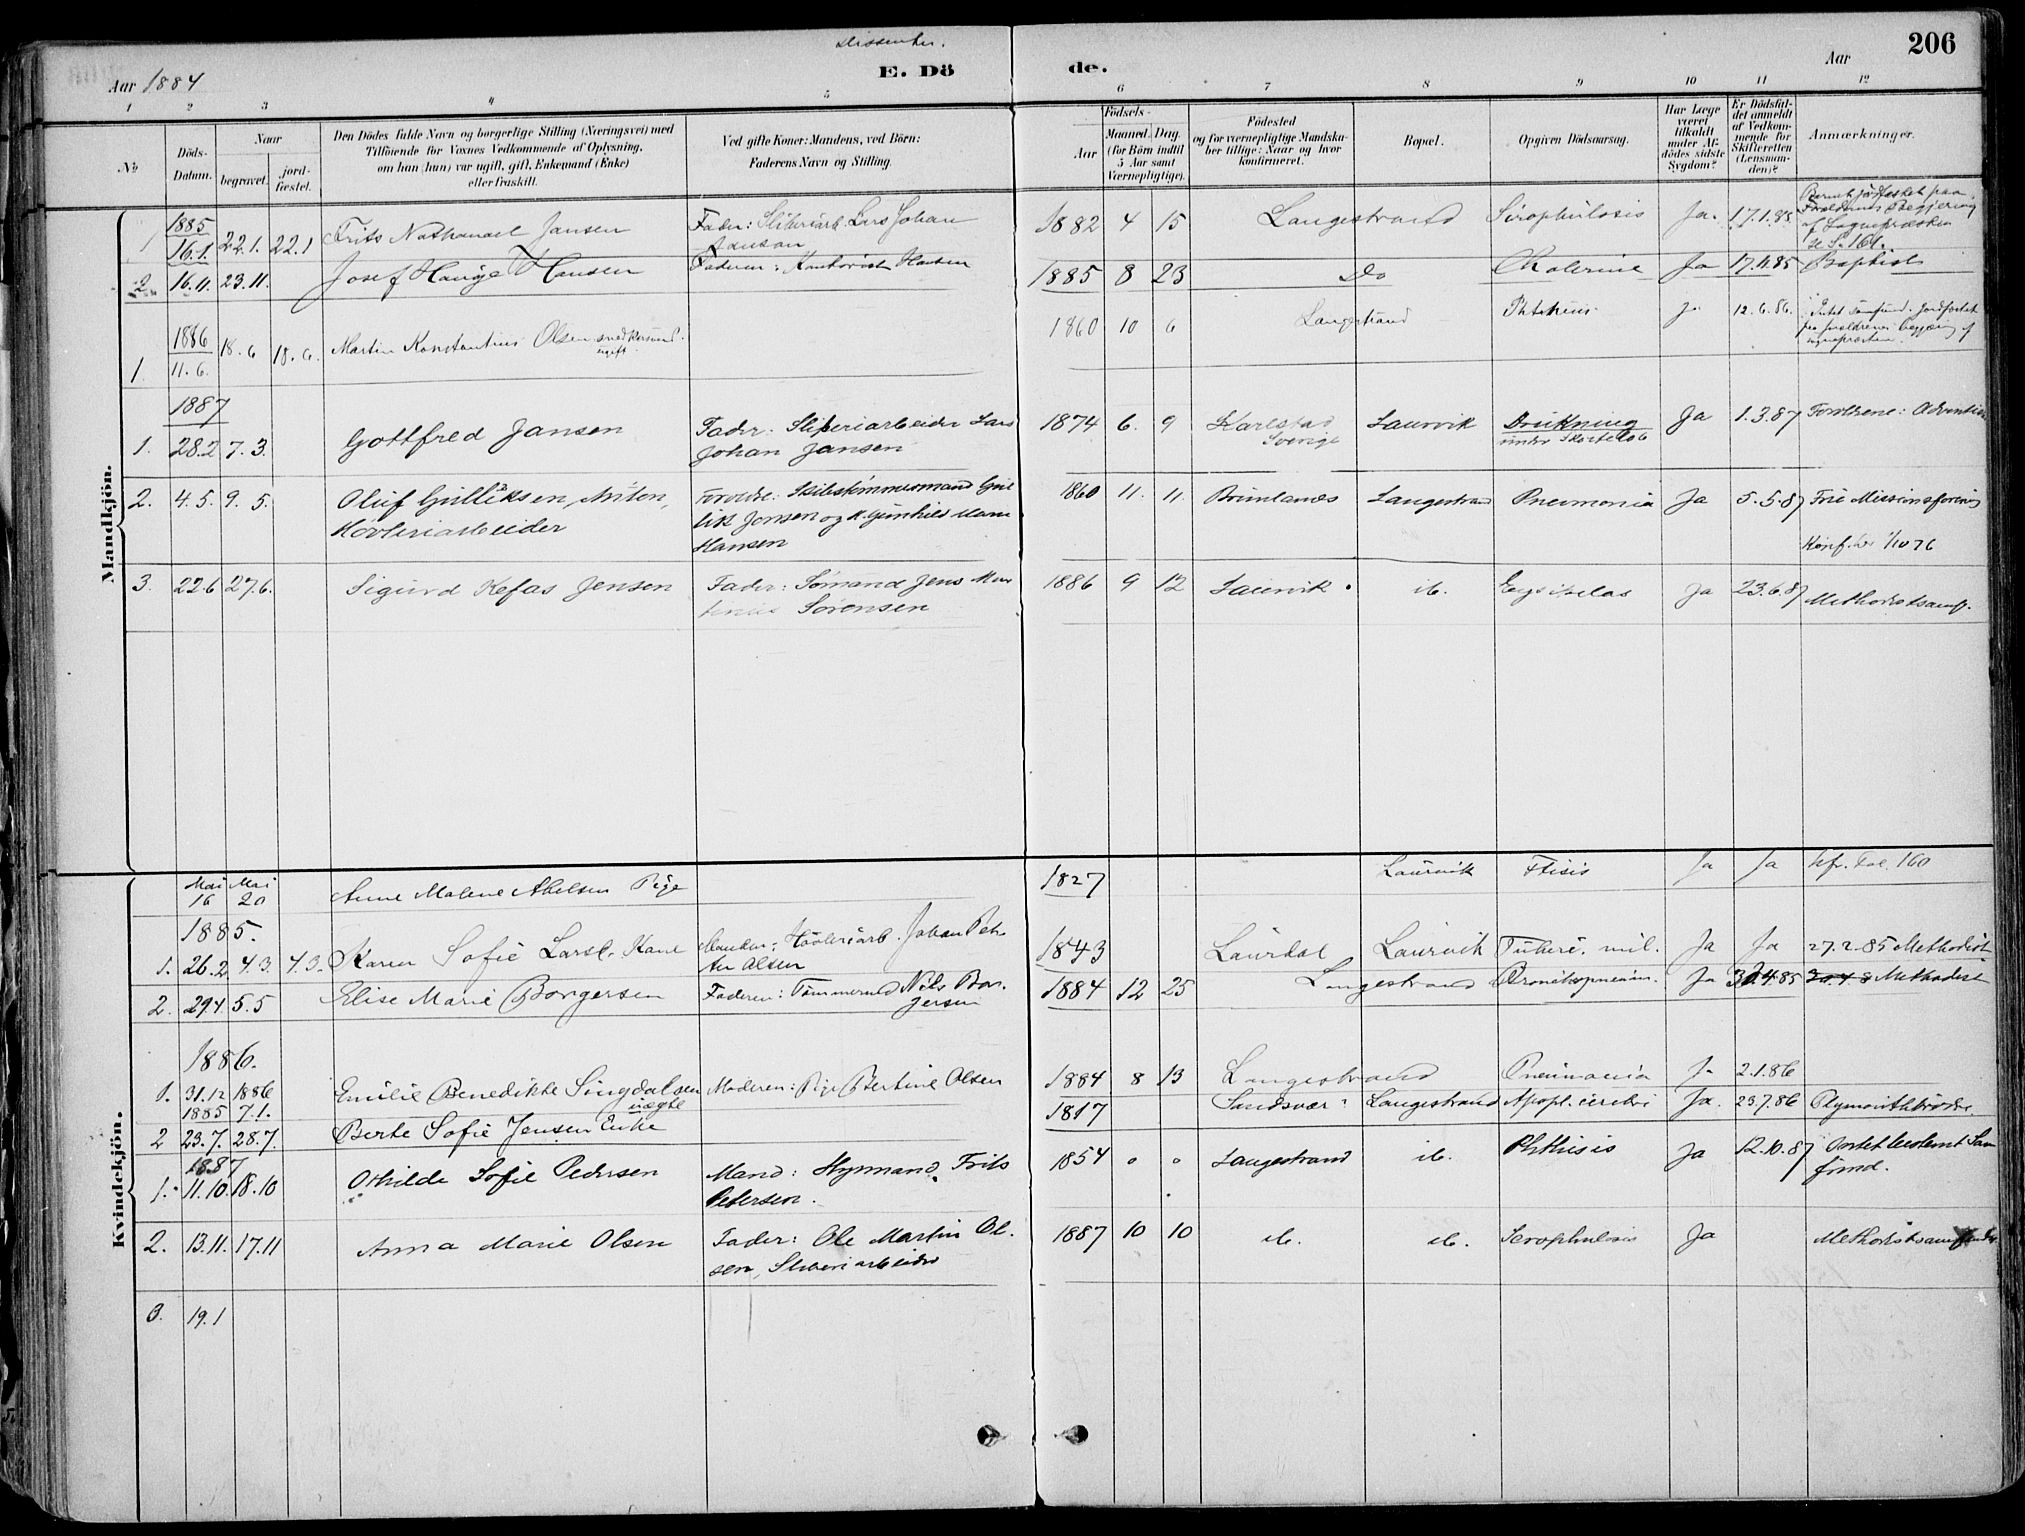 Dissenter.
206
Aar 1884
E. Döde.
Aar
1 2 3 4 5 6 7 8 9 10 11 12
No
Döds-Datum.
Naar
begravet.
jord-fæstet.
Den Dödes fulde Navn og borgerlige Stilling (Næringsvei) med
Tilföiende for Voxnes Vedkommende af Oplysning,
om han (hun) var ugift, gift, Enkemand (Enke)
eller fraskilt.
Ved gifte Koner: Mandens, ved Börn:
Faderens Navn og Stilling.
Födsels-
Aar
Maaned. Dag.
(for Börn indtil
5 Aar samt
Værnepligtige).
Födested
og for værnepligtige Mandska-
ber tillige: Naar og hvor
konfirmeret.
Bopæl.
Opgiven Dödsaarsag.
Har Læge
været
tilkaldt
under Af-
dödes sidste
Sygdom?
Er Dödsfal-
det anmeldt
af Vedkom-
mende for
Skifteretten
(Lensman-
den)?
Anmærkninger.
Mandkjön.
1885
1 16.1. 22.1. 22.1 Frits Nathanael Jansen Fader: Sliberiarb. Lars Johan Janson 1882 4 15 Langestrand Scrophulosis Ja. 17.1.85 Barnet jordfæstet paa
Forældrenes Begjering
af Sognepræsten
se S. 161.
2. 16.11. 23.11. Josef Hauge Hansen Faderen: Hansen 1885 8 23 Do Cholerine Ja 17.11.85 Baptist
1886
1. 11.6. 18.6 18.6. Martin Konstantius Olsen snedkersvend.
ugift. 1860 10 6 Langestrand Phthisis Ja 12.6.86. Intet Samfund. Jordfæstet
paa forældrenes begjæring af
sognepræsten.
1887
1. 28.2 7.3. Gottfred Jansen Fader: Sliperiarbeider Lars
Johan Jansen 1874 6. 9 Karlstad
Sverige Laurvik Drukning
under Skøiteløb Ja 1.3.87 Forældrene: Adventister
2. 4.5. 9.5. Oluf Gulliksen, Anton,
Høvleriarbeider Forældre: Skibstømmermand Gul
lik Jonsen og K. Gunhild Marie
Hansen 1860 11. 11. Brunlanes Langestrand Pneumonia Ja 5.5.87 Frie Missionsforening
Konf. 1/10 76
3. 22.6 27.6. Sigurd Kefas Jensen Fader: Sømand Jens Mar
tinius Sørensen 1886 9 12 Laurvik ib. Erysipelas Ja 23.6.87 Methodistsamf.
Kvindekjön.
Mai Mai
16 20 Anne Malene Abelsen Pige 1827 Laurvik Ftisis Ja Ja kfr. Fol. 160
1885.
1. 26.2 4.3. 4.3. Karen Sofie Larsd. Kone Manden: Høvleriarb. Johan Pet
ter Olsen 1843 Laurdal Laurvik Tuberc. mil. Ja Ja 27.2.85 Methodist
2. 29.4. 5.5 Elise Marie Borgersen Faderen: Tømmermd Nils Bor-
gersen 1884 12 25 Langestrand Bronchopneum. Ja 30.4.85 30.4.8 Methodist
1886.
1. 31.12 1885 1886 7.1. Emilie Benedikte Singdalsen
uægte Moderen: Pige Bertine Olsen 1884 8 13 Langestrand Pneumonia Ja 2.1.86
2 23.7. 28.7. Berte Sofie Jensen Enke 1817 Sandsvær Langestrand Apopl. cerebri Ja. 23.7.86 Plymouthbrødre
1887
1. 11.10. 18.10 Othilde Sofie Pedersen Mand: Hyrmand Frits
Pedersen. 1854 0 0 Langestrand ib. Phthisis Ja 12.10.87 Intet bestemt Sam
fund.
2. 13.11. 17.11 Anna Marie Olsen Fader: Ole Martin Ol.
sen, Sliberiarbeider 1887 10 10 ib. ib. Scrophulosis Ja Methodistsamfundet
3. 19.1